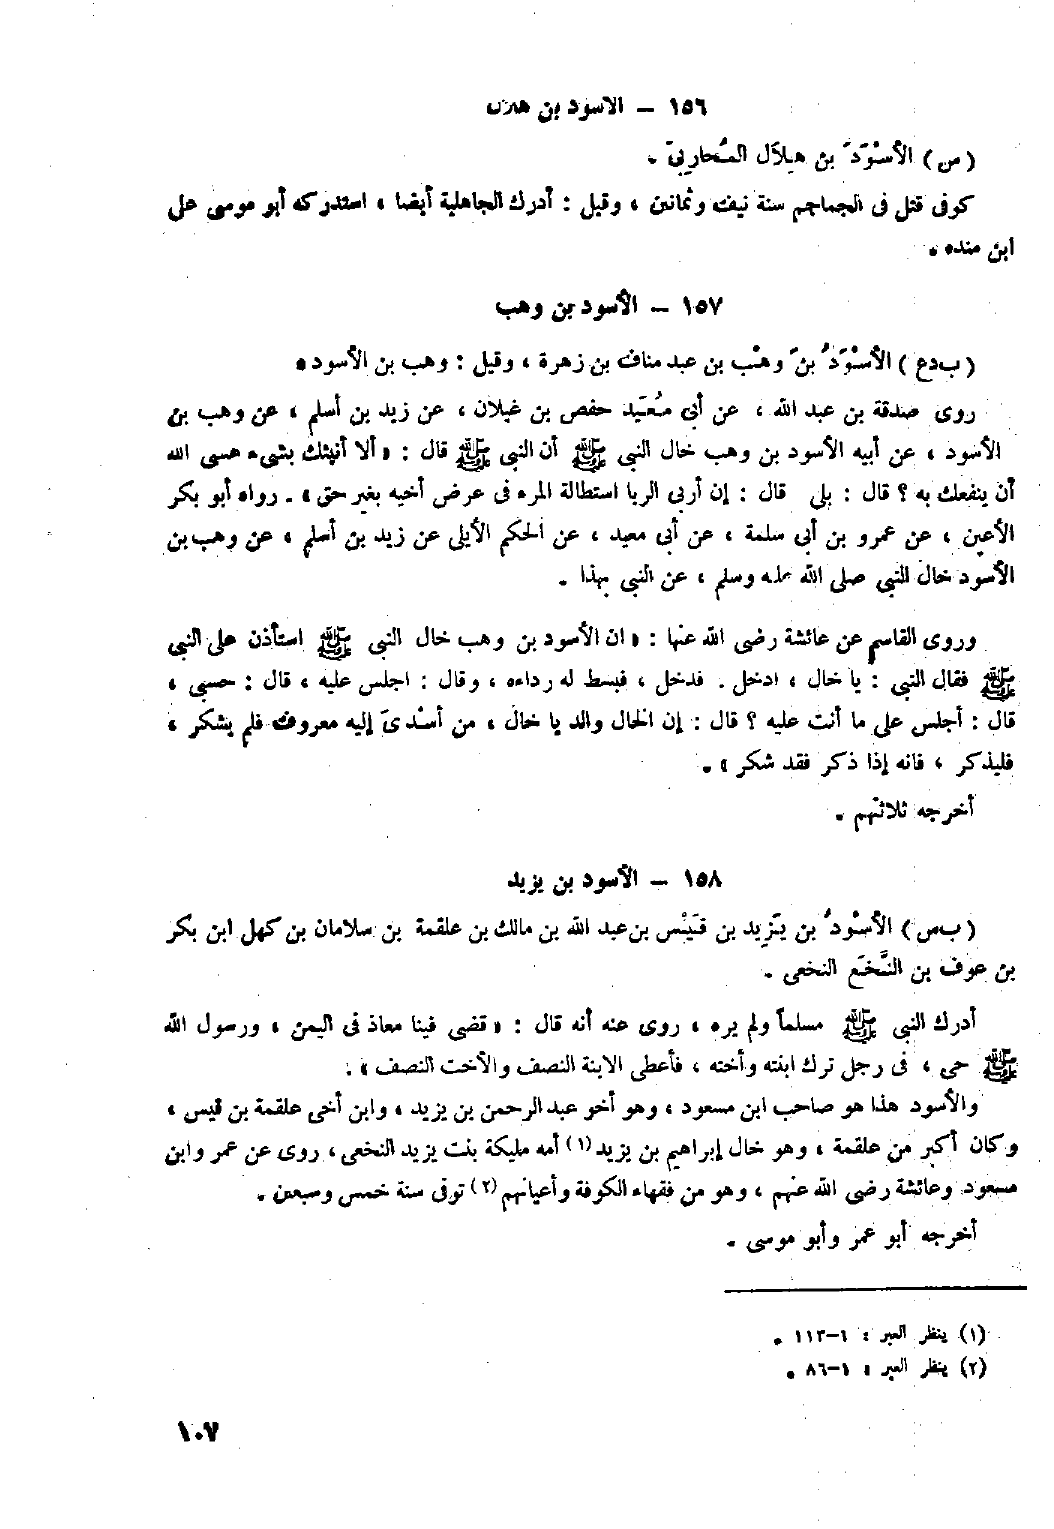 ١٥٦ – الأسود بن هلال
(س) الأسْوَد بن هِلاَل المُحَارِبيّ .
كوفى قتل فى الجماجم سنة نيف وثمانين ، وقيل : أدرك الجاهلية أيضا ، استدركه أبو موسى على
ابن منده .
١٥٧ – الأسود بن وهب
(ب د ع) الأسْوَدُ بنُ وَهْب بن عبد مناف بن زهرة ، وقيل : وهب بن الأسود .
روى صدقة بن عبد الله ، عن أبى مُعَيد حفص بن غيلان ، عن زيد بن أسلم ، عن وهب بن
الأسود ، عن أبيه الأسود بن وهب خال النبى ﷺ أن النبى ﷺ قال : « ألا أنبئك بشىء عسى الله
أن ينفعك به ؟ قال : بلى قال : إن أربى الربا استطالة المرء فى عرض أخيه بغير حق » . رواه أبو بكر
الأعين ، عن عمرو بن أبى سلمة ، عن أبى معيد ، عن الحكم الأيلى عن زيد بن أسلم ، عن وهب بن
الأسود خال النبى صلى الله عليه وسلم ، عن النبى بهذا .
وروى القاسم عن عائشة رضى الله عنها : « ان الأسود بن وهب خال النبى ﷺ استأذن على النبى
ﷺ فقال النبى : يا خال ، ادخل . فدخل ، فبسط له رداءه ، وقال : اجلس عليه ، قال : حسبى ،
قال : أجلس على ما أنت عليه ؟ قال : إن الخال والد يا خال ، من أسْدىَ إليه معروف فلم يشكر ،
فليذكر ، فانه إذا ذكر فقد شكر » .
أخرجه ثلاثتهم .
١٥٨ – الأسود بن يزيد
(ب س) الأسْوَدُ بن يَزِيد بن قَيْس بن عبد الله بن مالك بن علقمة بن سلامان بن كهل ابن بكر
بن عوف بن النَّخَع النخعى .
أدرك النبى ﷺ مسلماً ولم يره ، روى عنه أنه قال : « قضى فينا معاذ فى اليمن ، ورسول الله
ﷺ حى ، فى رجل ترك ابنته وأخته ، فأعطى الابنة النصف والأخت النصف » .
والأسود هذا هو صاحب ابن مسعود ، وهو أخو عبد الرحمن بن يزيد ، وابن أخى علقمة بن قيس ،
وكان أكبر من علقمة ، وهو خال إبراهيم بن يزيد (١) أمه مليكة بنت يزيد النخعى ، روى عن عمر وابن
مسعود وعائشة رضى الله عنهم ، وهو من فقهاء الكوفة وأعيانهم (٢) توفى سنة خمس وسبعين .
أخرجه أبو عمر وأبو موسى .
(١) ينظر العبر : ١–١١٣ .
(٢) ينظر العبر : ١–٨٦ .
١٠٧